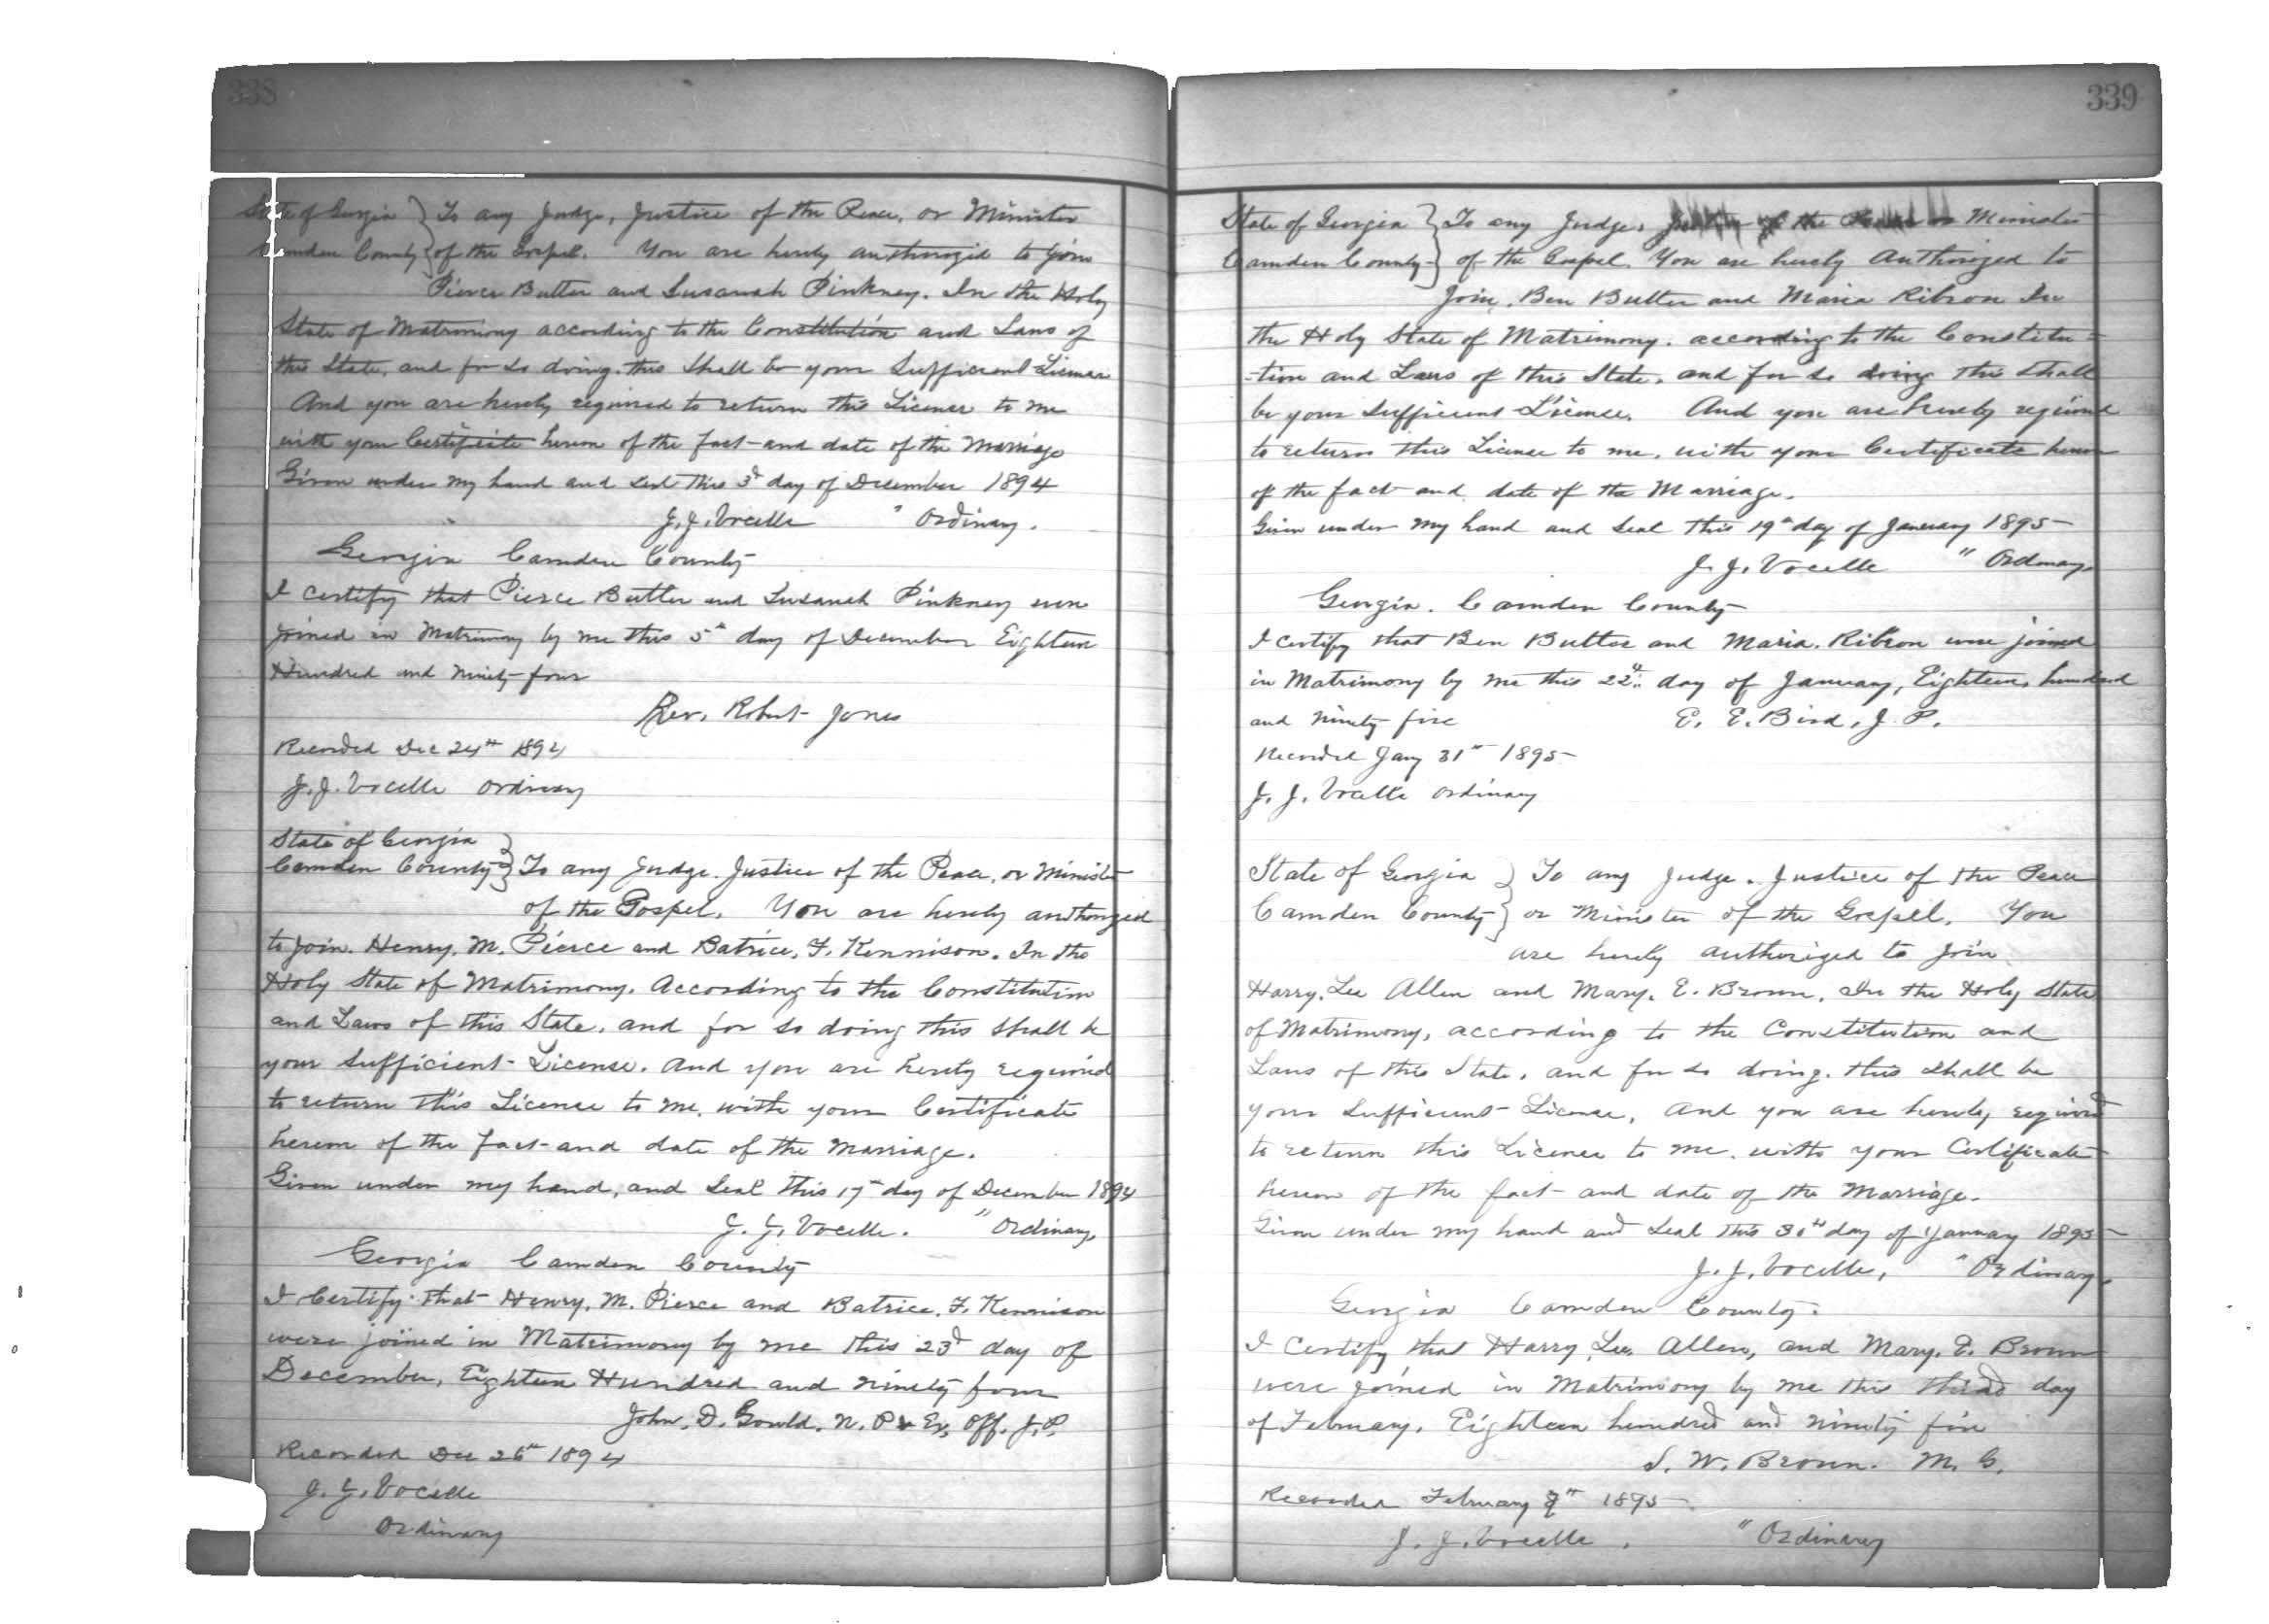 338
State of Georgia } To any Judge, Justice of the Peace, or Minister
Camden County } of the Gospel. You are hereby authorized to join
Pierce Butler and Susanah Pinkney. In the Holy
State of Matrimony according to the Constitution and Laws of
this State, and for so doing this shall be your Sufficient License
And you are hereby required to return this License to me
with your Certificate hereon of the fact and date of the Marriage
Given under my hand and seal this 3d day of December 1894
J. J. Vocelle " Ordinary.
Georgia Camden County
I certify that Pierce Butler and Susanah Pinkney were
joined in Matrimony by me this 5th day of December Eighteen
Hundred and ninety four
Rev. Robert Jones
Recorded Dec 24th 1894
J. J. Vocelle Ordinary
State of Georgia
Camden County } To any Judge. Justice of the Peace, or Minister
of the Gospel. You are hereby authorized
to join. Henry. M. Pierce and Batrice. F. Kennison. In the
Holy State of Matrimony. According to the Constitution
and Laws of this State, and for so doing this shall be
your sufficient License. And you are hereby required
to return this License to me. with your Certificate
hereon of the fact and date of the Marriage.
Given under my hand, and seal this 17th day of December 1894
J. J. Vocelle. " Ordinary.
Georgia Camden County
I Certify that Henry. M. Pierce and Batrice. F. Kennison
were joined in Matrimony by me this 23d day of
December, Eighteen Hundred and ninety four
John. D. Gould. N. P & Ex. Off. J. P.
Recorded Dec 26th 1894
J. J. Vocelle
Ordinary
339
State of Georgia } To any Judge, Justice of the Peace or Minister
Camden County } of the Gospel. You are hereby Authorized to
Join, Ben Butler and Maria Ribson In
the Holy State of Matrimony. according to the Constitu=
-tion and Laws of this State, and for so doing this shall
be your sufficient License. And you are hereby required
to return this License to me, with your Certificate hereon
of the fact and date of the Marriage.
Given under my hand and seal this 19th day of January 1895
J. J. Vocelle " Ordinary.
Georgia. Camden County
I certify that Ben Butler and Maria. Ribson were joined
in Matrimony by me this 22d day of January, Eighteen, hundred
and ninety five E. E. Bird, J. P.
Recorded Jany 31st 1895
J. J. Vocelle Ordinary
State of Georgia } To any Judge. Justice of the Peace
Camden County } or Minister of the Gospel. You
are hereby authorized to join
Harry. Lee Allen and Mary. E. Brown, In the Holy State
of Matrimony, according to the Constitution and
Laws of this State, and for so doing. this shall be
your sufficient License, And you are hereby required
to return this License to me. with your Certificate
hereon of the fact and date of the Marriage.
Given under my hand and seal this 30th day of January 1895
J. J. Vocelle, " Ordinary.
Georgia Camden County.
I Certify that Harry Lee. Allen, and Mary. E. Brown
were joined in Matrimony by me this third day
of February. Eighteen hundred and ninety five
S. W. Brown. M. G.
Recorded February 7th 1895
J. J. Vocelle, " Ordinary